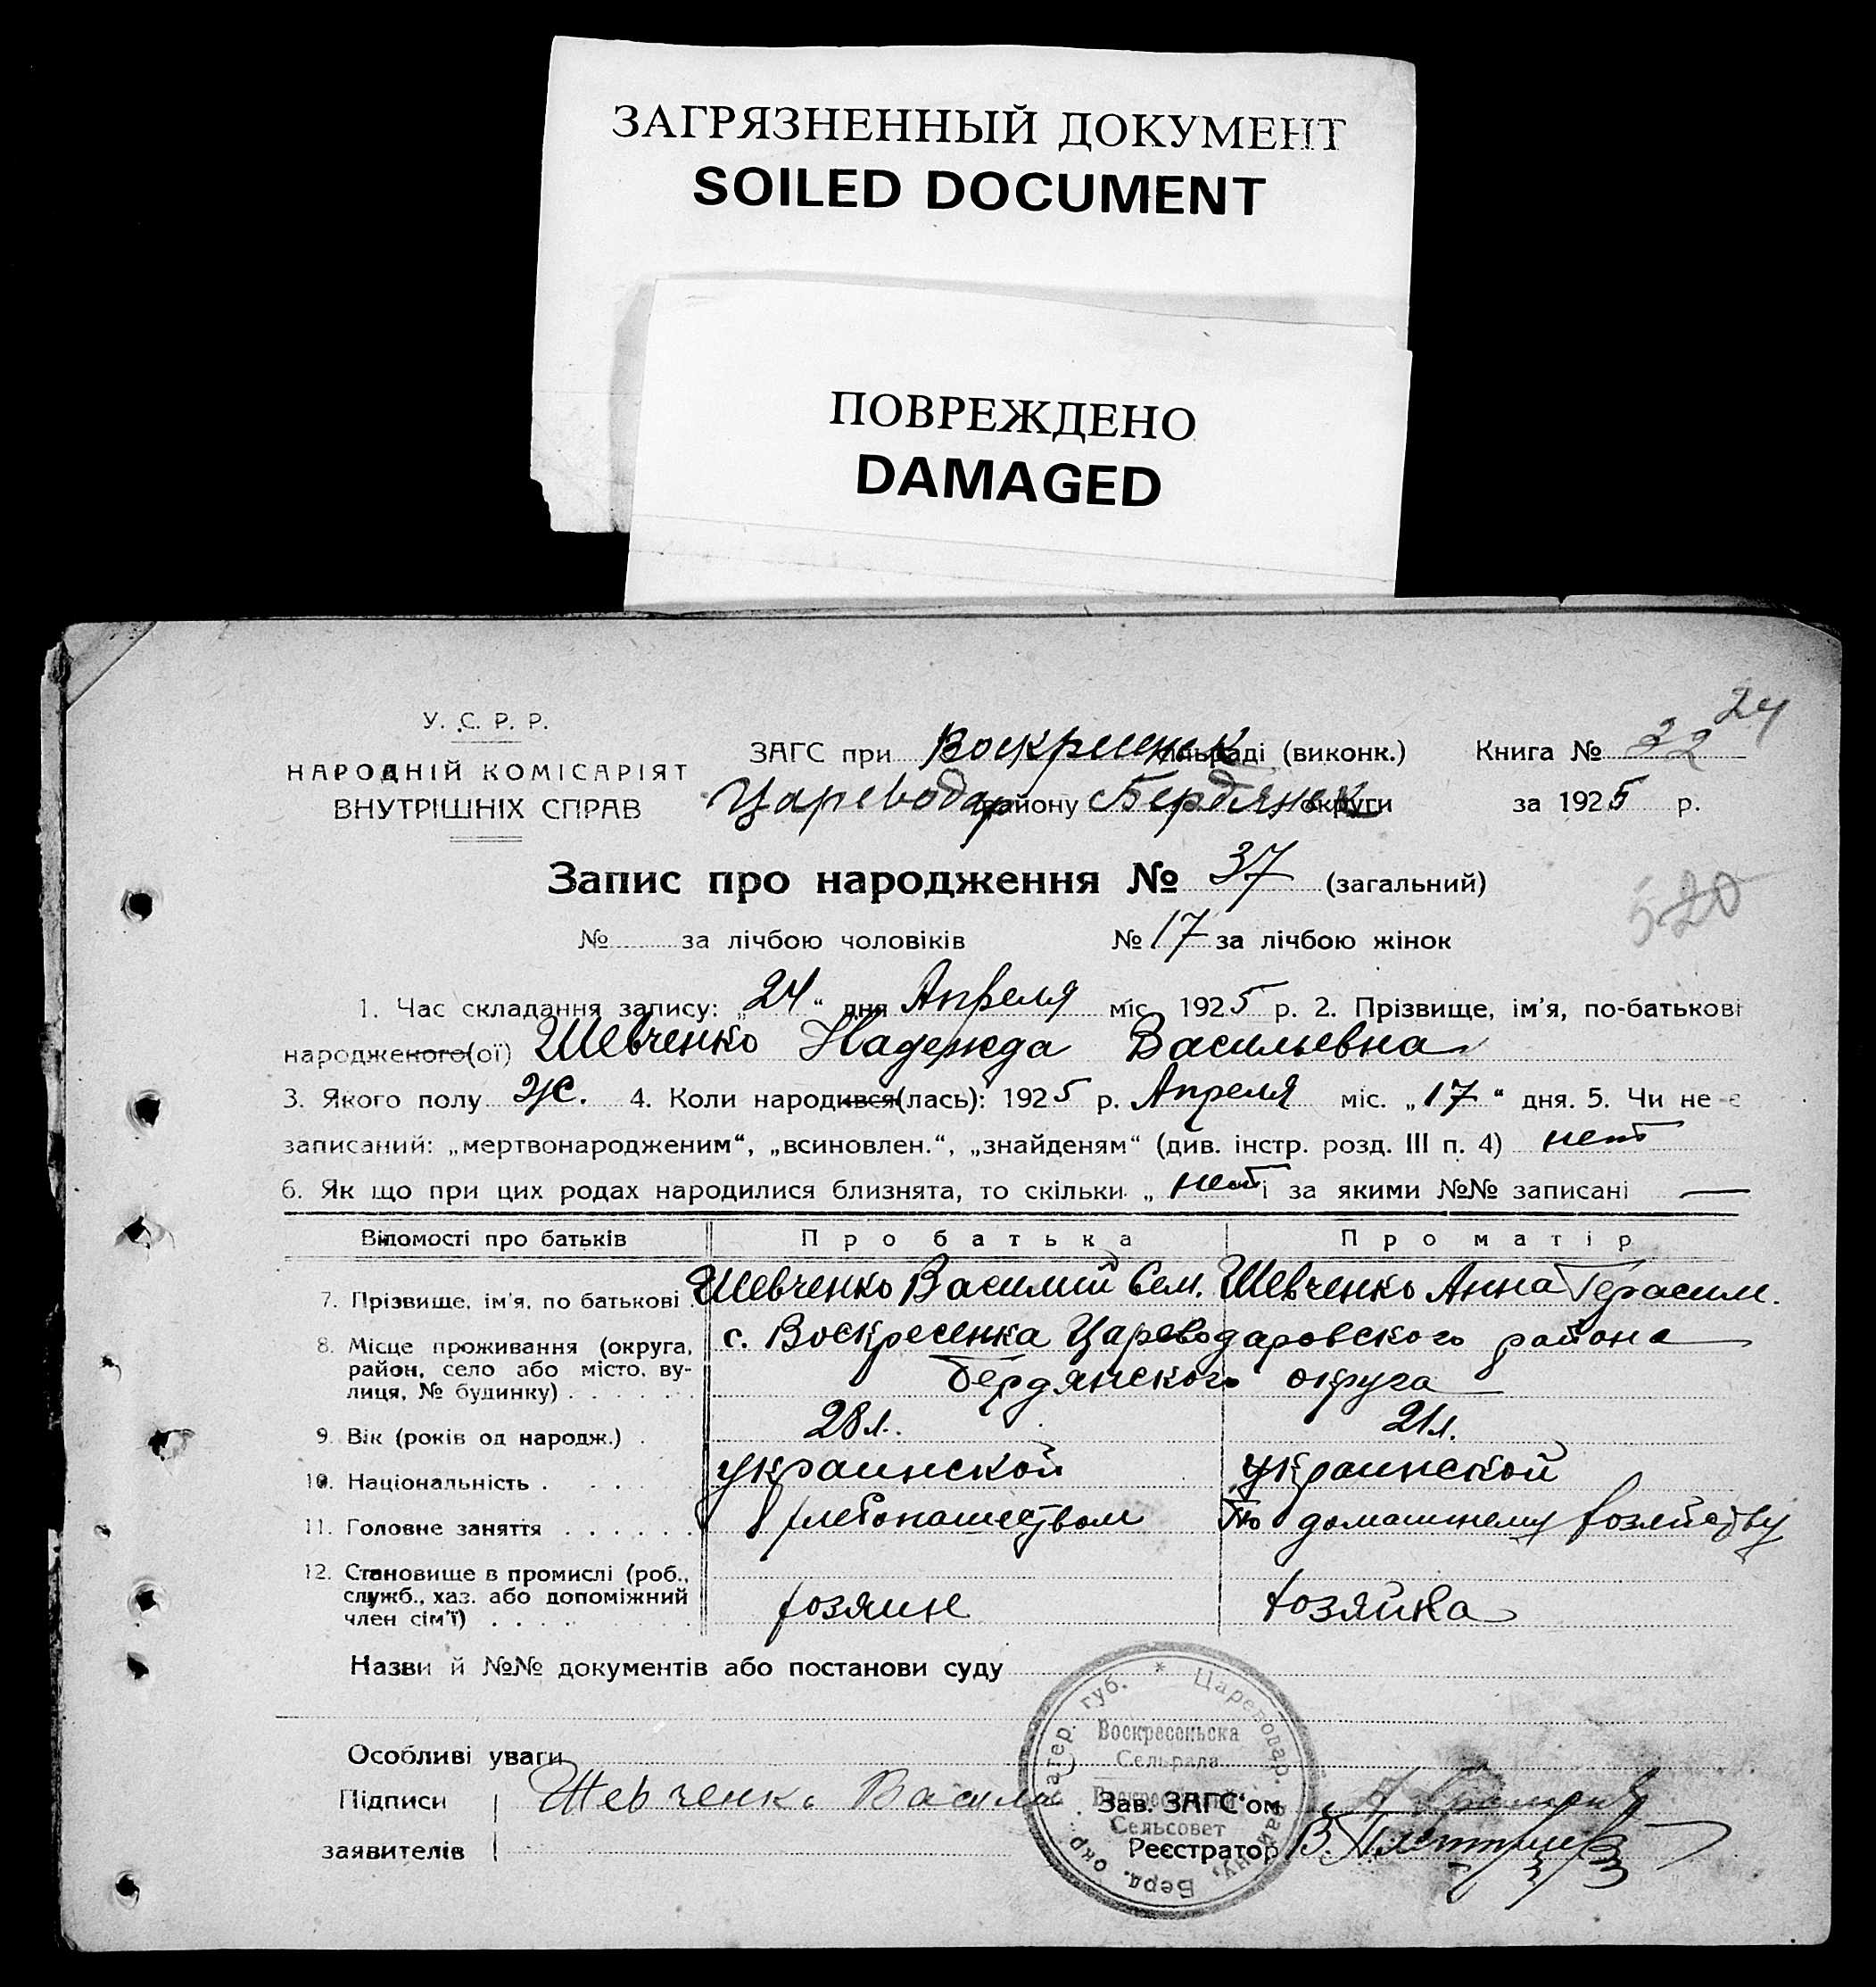 ЗАГРЯЗНЕННЫЙ ДОКУМЕНТ
SOILED DOCUMENT
ПОВРЕЖДЕНО
DAMAGED
24
У. С. Р. Р.
НАРОДНІЙ КОМІСАРІЯТ
ВНУТРІШНІХ СПРАВ
ЗАГС при Воскресенск сільраді (виконк.) Книга № 32
Цареводар району Бердянск округи за 1925 р.
Запис про народження № 37 (загальний)
520
№ за лічбою чоловіків № 17 за лічбою жінок
1. Час складання запису: „24“ дня Апреля міс. 1925 р. 2. Прізвище, ім'я, по-батькові
народженого(ої) Шевченко Надежда Васильевна
3. Якого полу Ж. 4. Коли народився(лась): 1925 р. Апреля міс. „17“ дня. 5. Чи не є
записаний: „мертвонародженим“, „всиновлен.“, „знайденям“ (див. інстр. розд. III п. 4) нет
6. Як що при цих родах народилися близнята, то скільки „ нет і за якими №№ записані —
Відомості про батьків Про батька Про матір
7. Прізвище, ім'я, по батькові Шевченко Василий Сем. Шевченко Анна Герасим.
8. Місце проживання (округа, район, село або місто, вулиця, № будинку) с. Воскресенка Цареводаровского района
Бердянского округа
9. Вік (років од народж.) 28 л. 21 л.
10. Національність украинской украинской
11. Головне заняття хлебопашеством По домашнему хозяйству
12. Становище в промислі (роб., служб., хаз. або допоміжний член сім'ї) хозяин хозяйка
Назви й №№ документів або постанови суду
Особливі уваги
Підписи заявителів Шевченко Васили
Зав. ЗАГС'ом
Реєстратор В.
* Цареводар. району, Берд. окр. Катер. губ.
Воскресеньска
Сельрада
Воскресенский
Сельсовет